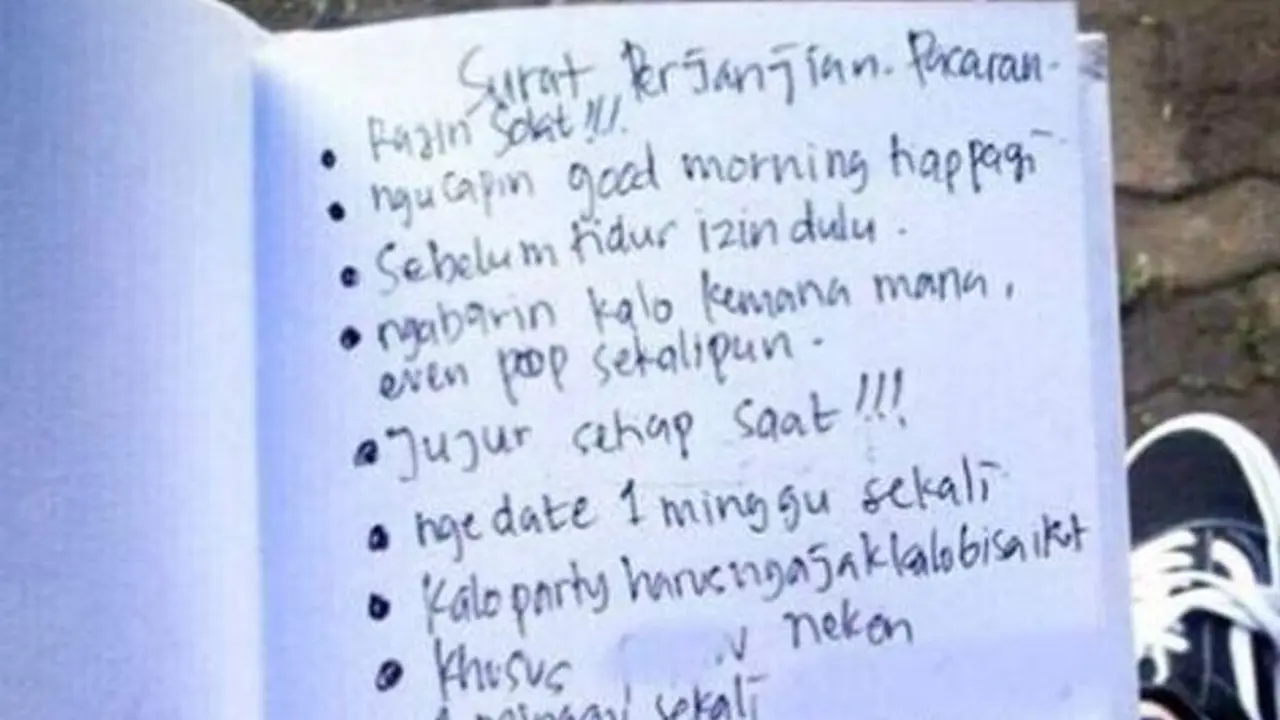 Surat Perjanjian. Pacaran.
• Rajin Solat !!!.
• ngucapin good morning tiap pagi
• Sebelum tidur izin dulu.
• ngabarin kalo kemana mana,
even poop sekalipun.
• Jujur setiap saat !!!
• ngedate 1 minggu sekali
• Kalo party harus ngajak kalo bisa ikut
• Khusus
1 minggu sekali